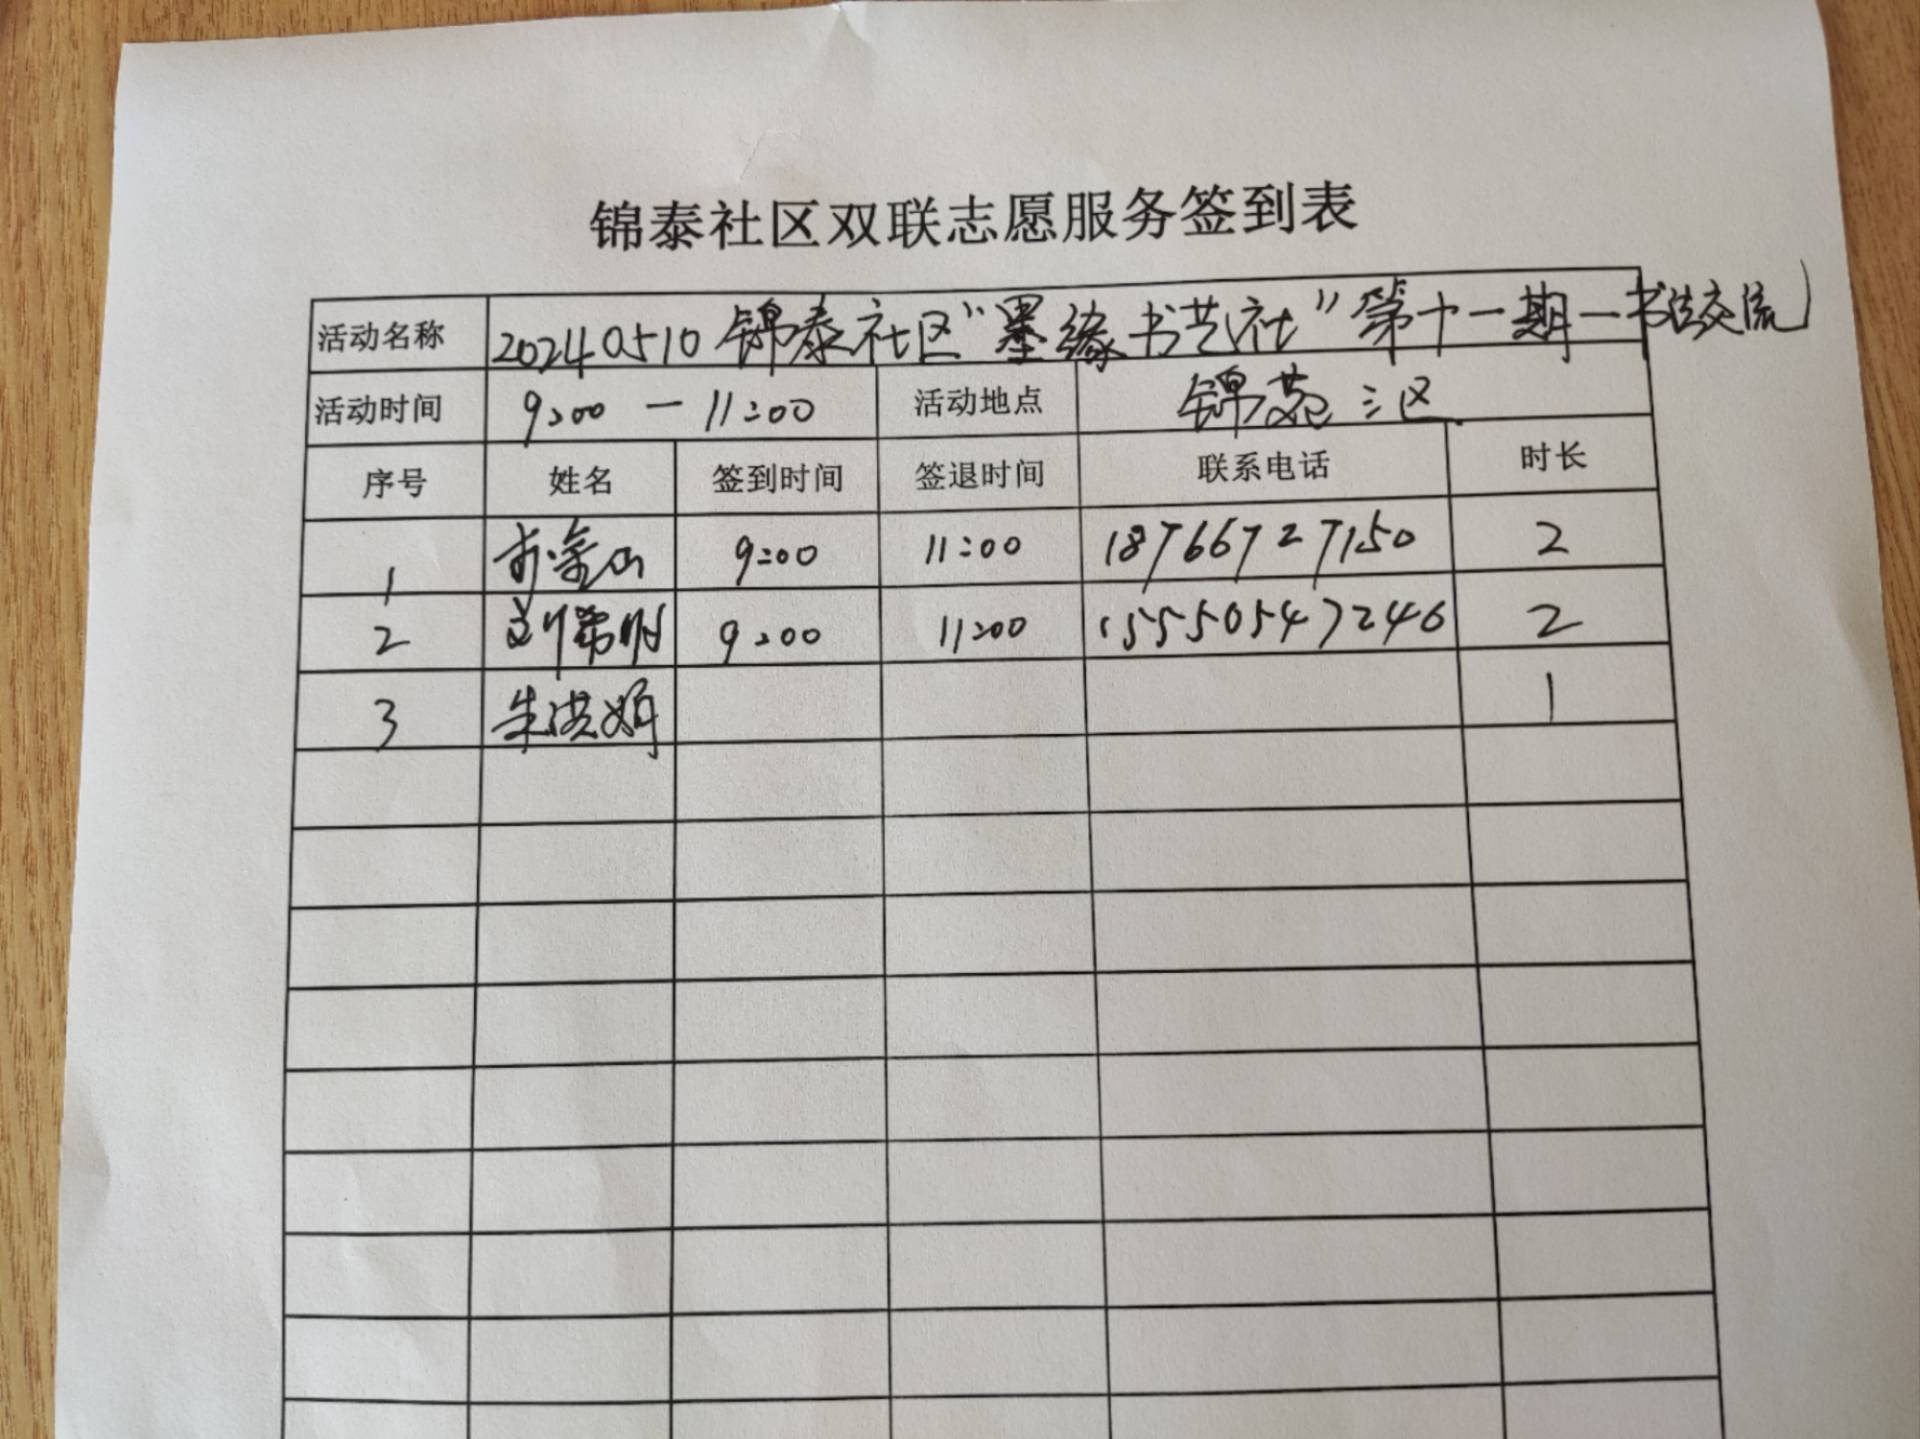 锦泰社区双联志愿服务签到表
活动名称 20240510锦泰社区“墨缘书艺社”第十一期—书法交流
活动时间 9:00 — 11:00 活动地点 锦苑三区
序号 姓名 签到时间 签退时间 联系电话 时长
1 金山 9:00 11:00 18766727150 2
2 刘希明 9:00 11:00 15550547246 2
3 朱洪娟 1